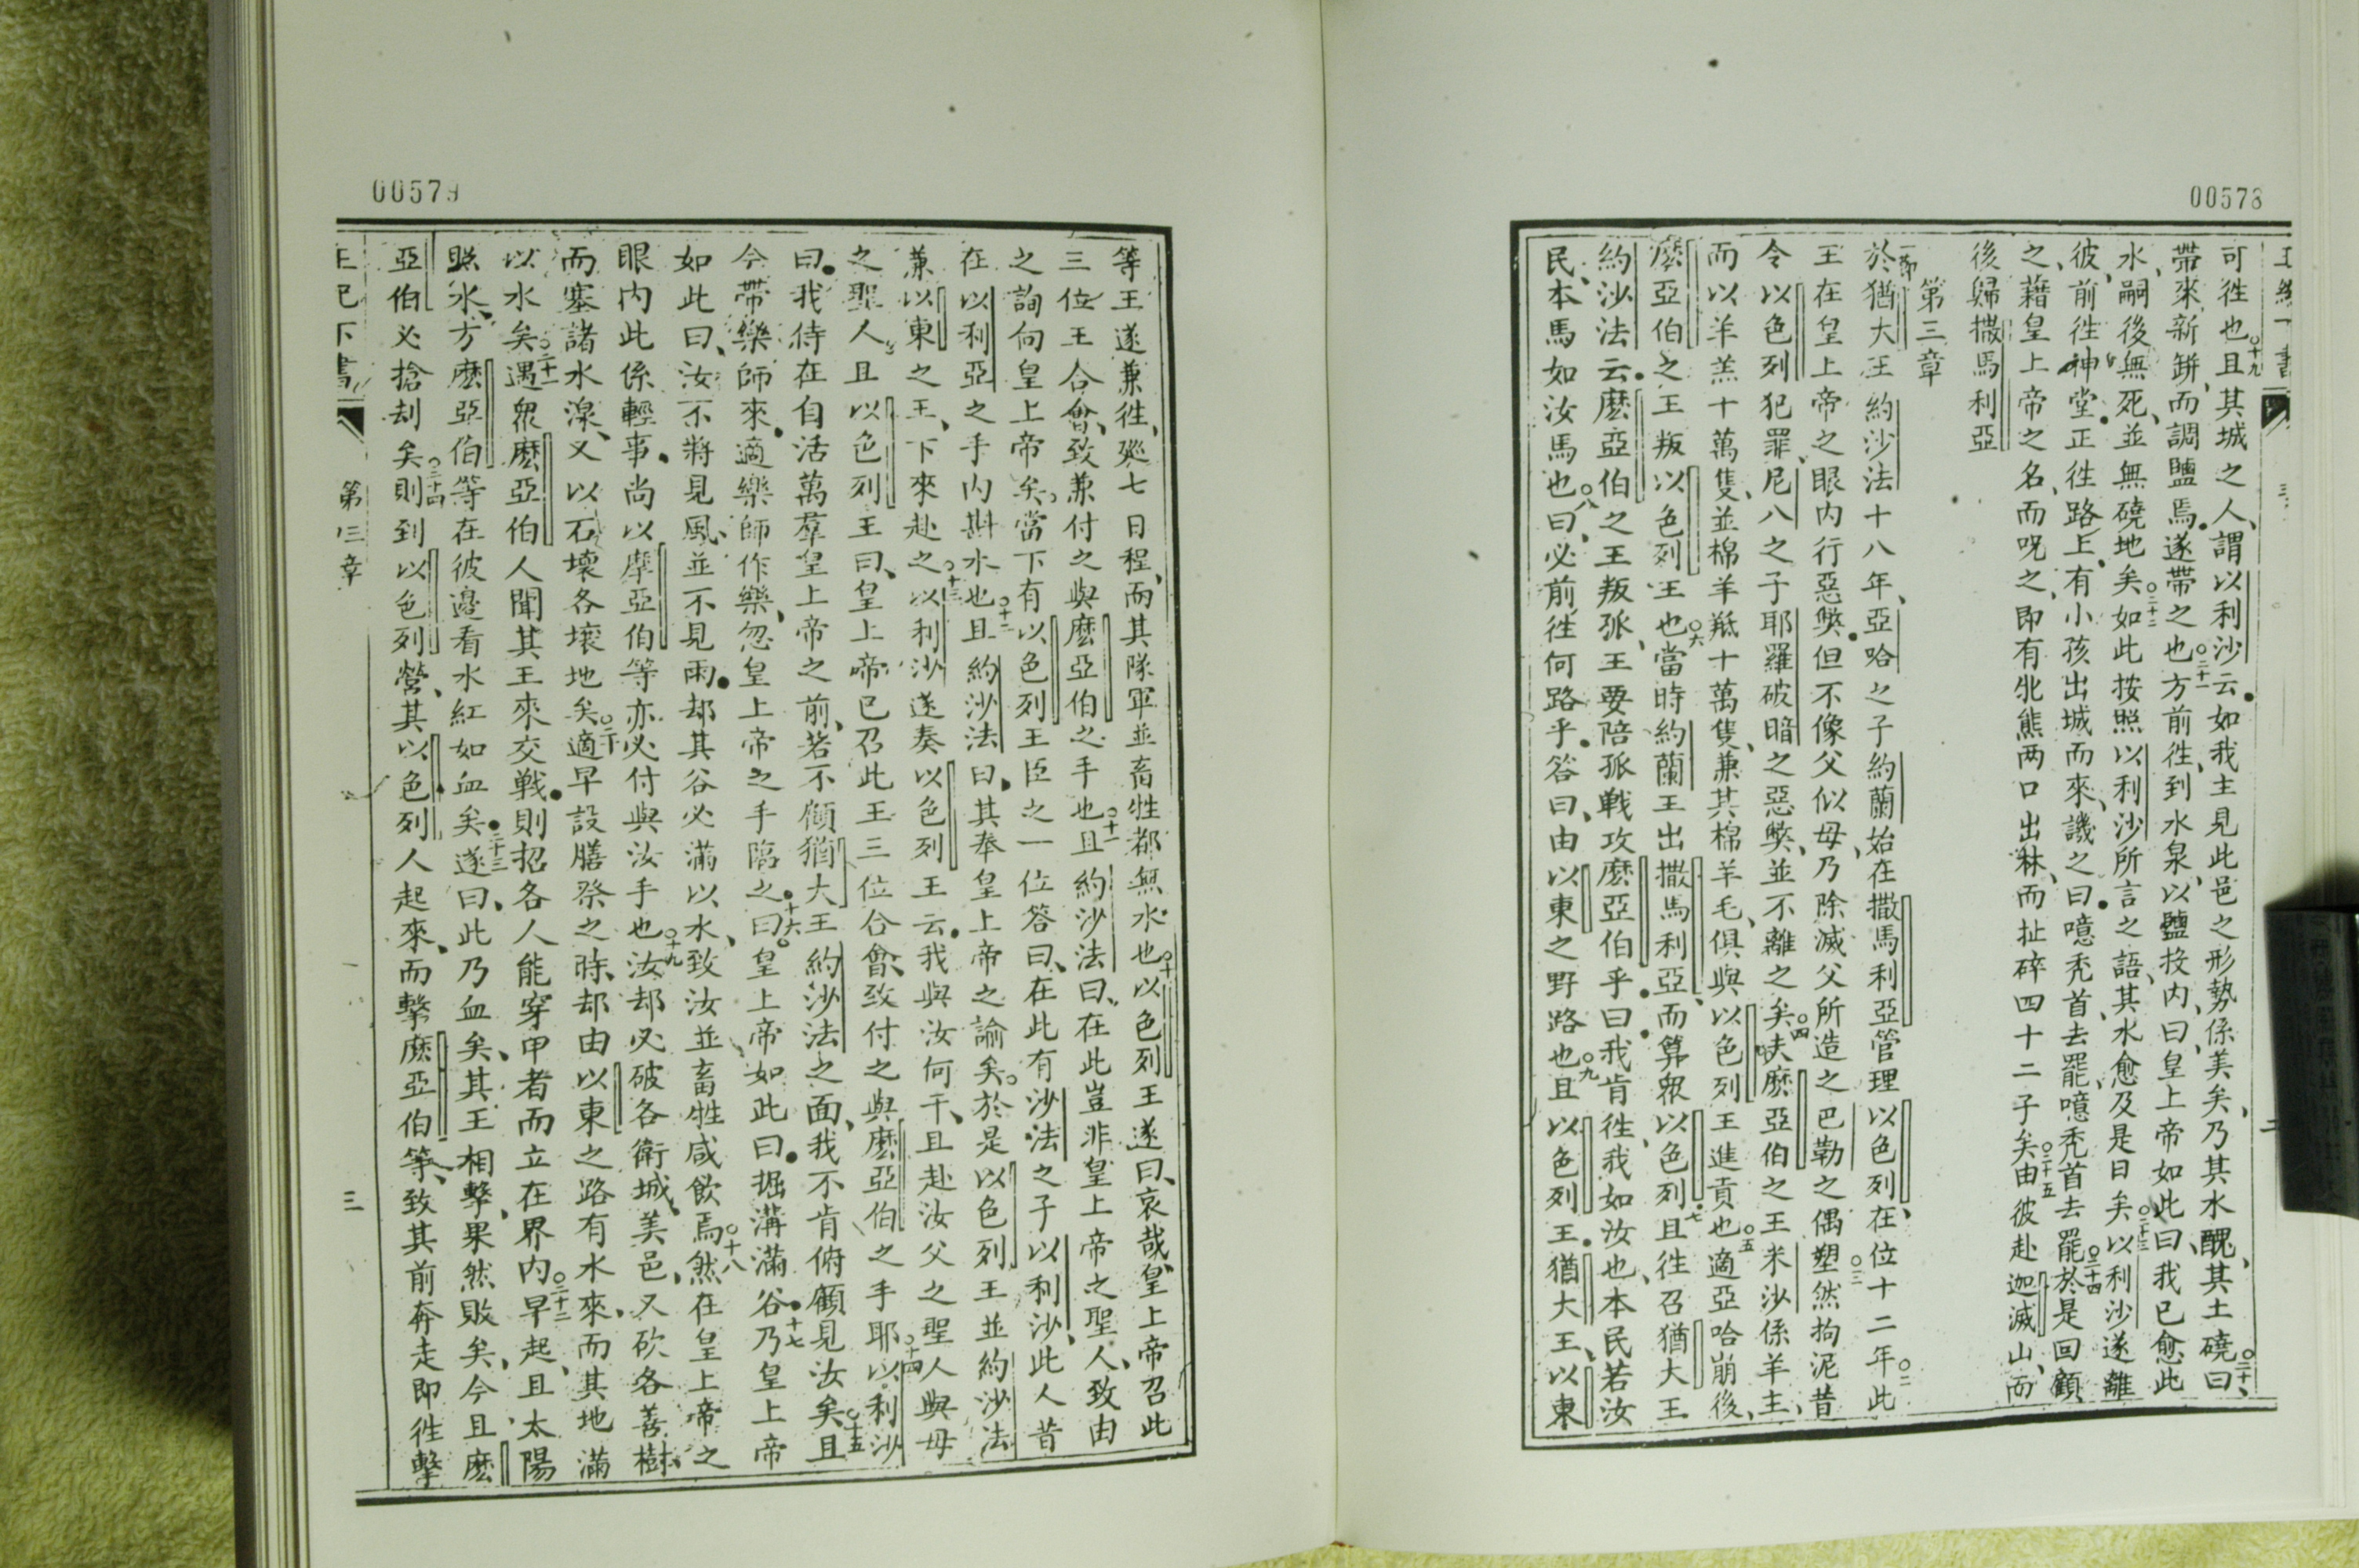 00578
可徃也○十九且其城之人、謂以利沙云如我主見此邑之形勢係美矣、乃其水醜、其土磽○二十曰、
帶來新缾、而調鹽焉遂帶之也○二十一方前徃、到水泉、以鹽投内、曰、皇上帝如此曰、我已愈此
水、嗣後無死、並無磽地矣○二十二如此按照以利沙所言之語、其水愈及是日矣○二十三以利沙遂離
彼、前徃神堂正徃路上、有小孩出城而來、譏之曰噫禿首去罷、噫禿首去罷○二十四於是回顧
之藉皇上帝之名、而呪之、即有牝熊两口出林、而扯碎四十二子矣○二十五由彼赴迦滅山、而
後歸撒馬利亞
第三章
一節於猶大王約沙法十八年、亞哈之子約蘭始在撒馬利亞管理以色列、在位十二年○二此
王在皇上帝之眼内行惡獘但不像父似母、乃除滅父所造之巴勒之偶塑○三然拘泥昔
令以色列犯罪、尼八之子耶羅破暗之惡獘、並不離之矣○四夫麽亞伯之王米沙係羊主、
而以羊羔十萬隻、並棉羊羝十萬隻、兼其棉羊毛、俱與以色列王進貢也○五適亞哈崩後、
麽亞伯之王叛以色列王也○六當時約蘭王出撒馬利亞、而算眾以色列七且徃召猶大王
約沙法云麽亞伯之王叛孤、王要陪孤戰攻麽亞伯乎曰我肯徃、我如汝也、本民若汝
民、本馬如汝馬也○八曰、必前徃何路乎答曰、由以東之野路也○九且以色列王猶大王、以東
00579
等王遂兼徃、廵七日程、而其隊軍並畜牲都無水也○十以色列王遂曰、哀哉、皇上帝召此
三位王合會、致兼付之與麽亞伯之手也○十一且約沙法曰、在此豈非皇上帝之聖人、致由
之詢向皇上帝矣當下有以色列王臣之一位答曰、在此有沙法之子以利沙、此人昔
在以利亞之手内斟水也○十二且約沙法曰其奉皇上帝之諭矣於是以色列王並約沙法
兼以東之王、下來赴之○十三以利沙遂奏以色列王云我與汝何干、且赴汝父之聖人與母
之聖人且以色列王曰、皇上帝已召此王三位合會、致付之與麽亞伯之手耶○十四以利沙
曰我侍在自活萬羣皇上帝之前、若不顧猶大王約沙法之面、我不肯俯顧見汝矣○十五且
今帶樂師來適樂師作樂、忽皇上帝之手臨之十六曰皇上帝如此曰掘溝滿谷十七乃皇上帝
如此曰、汝不將見風、並不見雨却其谷必滿以水、致汝並畜牲咸飲焉○十八然在皇上帝之
眼内此係輕事尚以摩亞伯等亦必付與汝手也○十九汝却必破各衛城、美邑、又砍各善樹、
而塞諸水湶、又以石壞各壤地矣○二十適早設膳祭之時、却由以東之路有水來、而其地滿
以水矣○二十一遇眾麽亞伯人聞其王來交戰則招各人能穿甲者而立在界内○二十二早起、且太陽
照水、方麽亞伯等在彼邊看水紅如血矣二十三遂曰、此乃血矣、其王相擊、果然敗矣、今且麽
亞伯必搶刦矣○二十四則到以色列營、其以色列人起來、而擊麽亞伯等、致其前奔走即徃擊
王紀下書
第三章
三